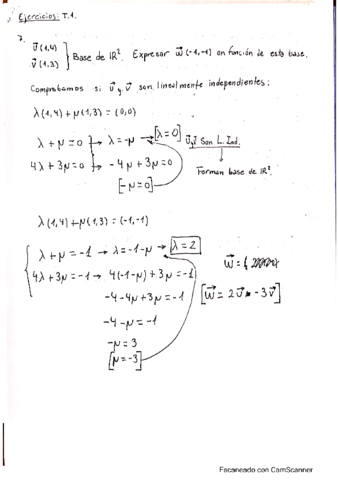 Ejercicios: T.1.
7.
U⃗(1,4)
V⃗(1,3) } Base de IR². Expresar w⃗(-1,-1) en función de esta base.
Comprobamos si u⃗ y v⃗ son linealmente independientes:
λ(1,4) + μ(1,3) = (0,0)
λ + μ = 0 → λ = -μ → [λ = 0] u⃗ y v⃗ Son L. Ind.
4λ + 3μ = 0 → -4μ + 3μ = 0 Forman base de IR².
[-μ = 0]
λ(1,4) + μ(1,3) = (-1,-1)
λ + μ = -1 → λ = -1-μ → [λ = 2]
4λ + 3μ = -1 → 4(-1-μ) + 3μ = -1
w⃗ =
-4-4μ+3μ = -1
[w⃗ = 2u⃗ - 3v⃗]
-4-μ = -1
-μ = 3
[μ = -3]
Escaneado con CamScanner